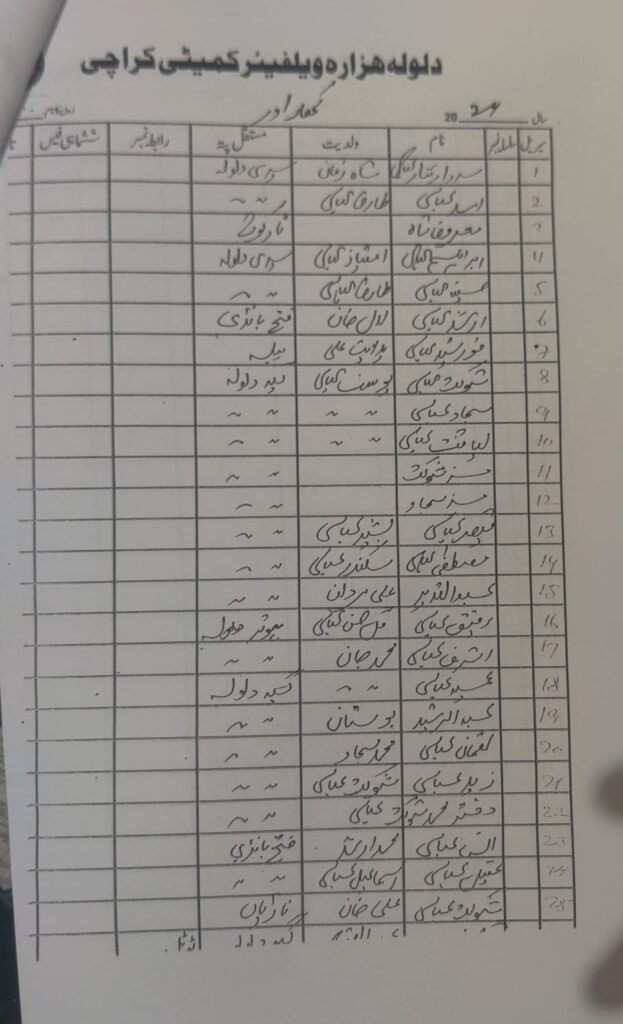 دلولہ ھزارہ ویلفیئر کمیٹی کراچی
کھارادر
سال 2024
سیریل سلسلہ نمبر نام ولدیت مستقل پتہ رابطہ نمبر ششماہی فیس
1 سردار مختار عباسی شاہ زمان سوری دلولہ
2 اسد عباسی طارق عباسی 〃 〃
3 معروف شاہ
4 ابراہیم عباسی امتیاز عباسی سوری دلولہ
5 حسیب عباسی طارق عباسی 〃 〃
6 ارشد عباسی لال خان فتح بانڈی
7 خورشید عباسی ہدایت علی
8 شوکت عباسی یوسف عباسی دلولہ
9 سجاد عباسی 〃 〃 〃 〃
10 لیاقت عباسی 〃 〃 〃 〃
11 مسز شوکت 〃 〃
12 مسز سجاد 〃 〃
13 قیصر عباسی بشیر عباسی 〃 〃
14 مصطفی عباسی سکندر عباسی 〃 〃
15 عبدالقدیر علی مردان 〃 〃
16 رفیق عباسی گل حسن عباسی دلولہ
17 اشرف عباسی محمد جان 〃 〃
18 عباسی 〃 〃 دلولہ
19 عبدالرشید بوستان 〃 〃
20 لقمان عباسی محمد سجاد 〃 〃
21 زبید عباسی شوکت عباسی 〃 〃
22 دختر محمد شوکت عباسی 〃 〃
23 انس عباسی محمد ارشد فتح بانڈی
24 عقیل عباسی اسماعیل عباسی 〃 〃
25 شوکت عباسی علی خان